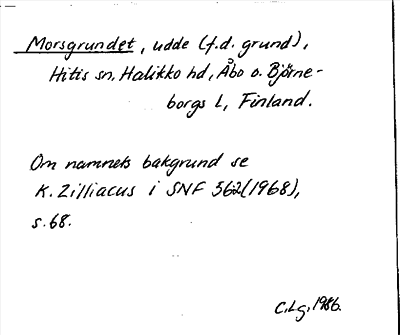 Morsgrundet, udde (f.d. grund),
Hitis sn, Halikko hd, Åbo o. Björne-
borgs L, Finland.
Om namnets bakgrund se
K. Zilliacus i SNF 562(1968),
s. 68.
C.Lg. 1986.